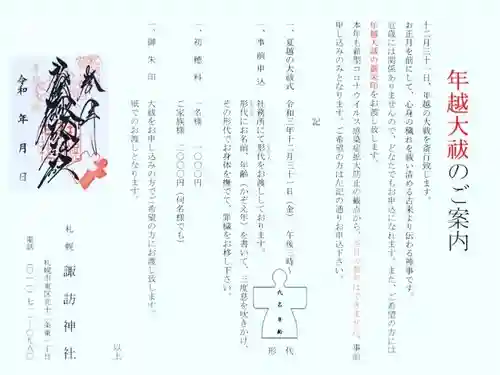 年越大祓のご案内
十二月三十一日、年越の大祓を斎行致します。
お正月を前にして、心身の穢れを祓い清める古来より伝わる神事です。
厄歳には関係ありませんので、どなたでもお申込になれます。また、ご希望の方には
年越大祓の御朱印をお渡し致します。
本年も新型コロナウイルス感染症拡大防止の観点から、当日の参列はできません。事前
申し込みのみとなります。ご希望の方は左記の通りお申込下さい。
記
一、夏越の大祓式 令和三年十二月三十一日(金) 午後三時~
一、事前申込 社務所にて形代をお渡ししております。
形代にお名前、年齢(かぞえ年)を書いて、三度息を吹きかけ、
その形代でお身体を撫でて、罪穢をお移し下さい。
形代
氏名年齢
一、初穂料 一名様 一〇〇〇円
ご家族様 二〇〇〇円(何名様でも)
一、御朱印 大祓をお申し込みの方でご希望の方にお渡し致します。
紙でのお渡しとなります。
以上
札幌 諏訪神社
札幌市東区北十二条東一丁目
電話 〇一一-七一一-〇九六〇
奉拝
令和 年 月 日